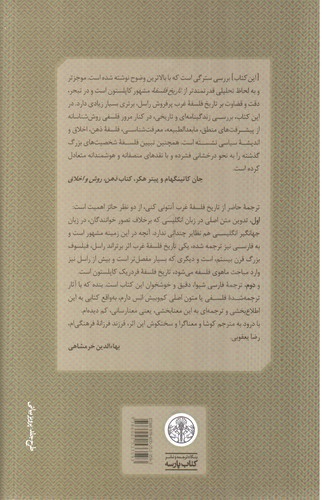 [این کتاب] بررسی سترگی است که با بالاترین وضوح نوشته شده است. موجزتر
و به لحاظ تحلیلی قدرتمندتر از تاریخ فلسفهٔ مشهور کاپلستون است و در تبحر،
دقت و قضاوت بر تاریخ فلسفهٔ غرب پرفروش راسل، برتری بسیار زیادی دارد. در
این کتاب، بررسی زندگینامه‌ای و تاریخی، در کنار مرور فلسفی روش‌شناسانه
از پیشرفت‌های منطق، مابعدالطبیعه، معرفت‌شناسی، فلسفهٔ ذهن، اخلاق و
اندیشهٔ سیاسی ننشسته است. همچنین تبیین فلسفهٔ شخصیت‌های بزرگ
گذشته را به نحو درخشانی فشرده و با نقدهای منصفانه و هوشمندانه متعادل
کرده است.
جان کاتینگهام و پیتر هکر، کتاب ذهن، روش و اخلاق
ترجمهٔ حاضر از تاریخ فلسفهٔ غرب آنتونی کنی، از دو نظر حائز اهمیت است.
اول، تدوین متن اصلی در زبان انگلیسی که برخلاف تصور خوانندگان، در زبان
جهانگیر انگلیسی هم نظایر چندانی ندارد. آنچه در این زمینه مشهور است و
به فارسی نیز ترجمه شده، یکی تاریخ فلسفهٔ غرب اثر برتراند راسل، فیلسوف
بزرگ قرن بیستم، است و دیگری که بسیار مفصل‌تر است و بیش از راسل نیز
وارد مباحث ماهوی فلسفه می‌شود، تاریخ فلسفهٔ فردریک کاپلستون است.
و دوم، ترجمهٔ فارسی شیوا، دقیق و خوشخوان این کتاب است. بنده که با آثار
ترجمه‌شدهٔ فلسفی یا متون اصلی کم‌وبیش انس دارم، به‌واقع کتابی به این
اطلاع‌بخشی و ترجمه‌ای به این معنابخشی، یعنی معنارسانی، کم دیده‌ام.
با درود به مترجم کوشا و معناگرا و سختکوش این اثر، فرزند فرزانهٔ فرهنگی‌ام،
رضا یعقوبی.
بهاءالدین خرمشاهی
بنگاه ترجمه و نشر
کتاب پارسه
طرح جلد: پرویز بیانی